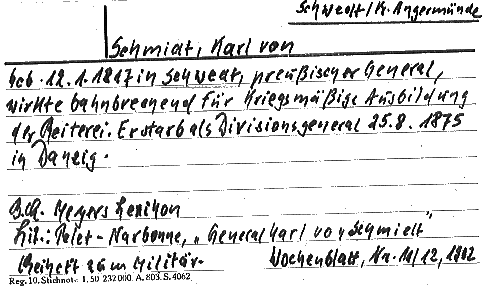 Schwedt/Kr. Angermünde
Schmidt, Karl von
Geb. 12.1.1817 in Schwedt, preußischer General,
wirkte bahnbrechend für Kriegsmäßige Ausbildung
der Reiterei. Er starb als Divisionsgeneral 25.8.1875
in Danzig.
Meyers Lexikon
Lit.: Pelet-Narbonne, „General Karl von Schmidt"
Beiheft zum Militär- Wochenblatt, Nr. 11/12, 1902
Reg. 10. Stichnot-: 1.50 232000. A. 803. S. 4062.